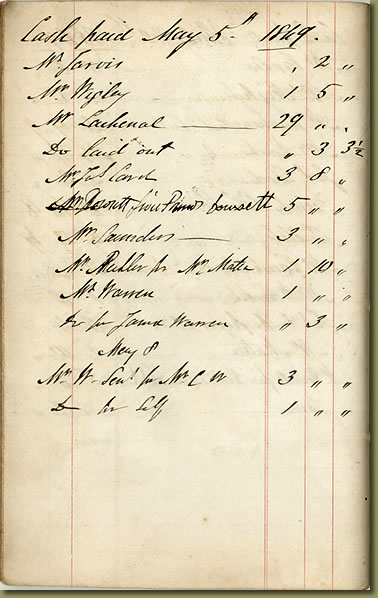 Cash paid May 5th 1849.
Mr Jarvis , 2 "
Mrs Wigley 1 5 "
Mr Lachenal — 29 " "
Do laid out " 3 3½
Mr Jas Card 3 8 "
five Pounds 5 " "
Mr Saunders — 3 " "
Mr for Mr 1 10 "
Mr Warren 1 " "
Do for James Warren " 3 "
May 8
Mr W Senr for Mr C W 3 " "
D for Self 1 " "